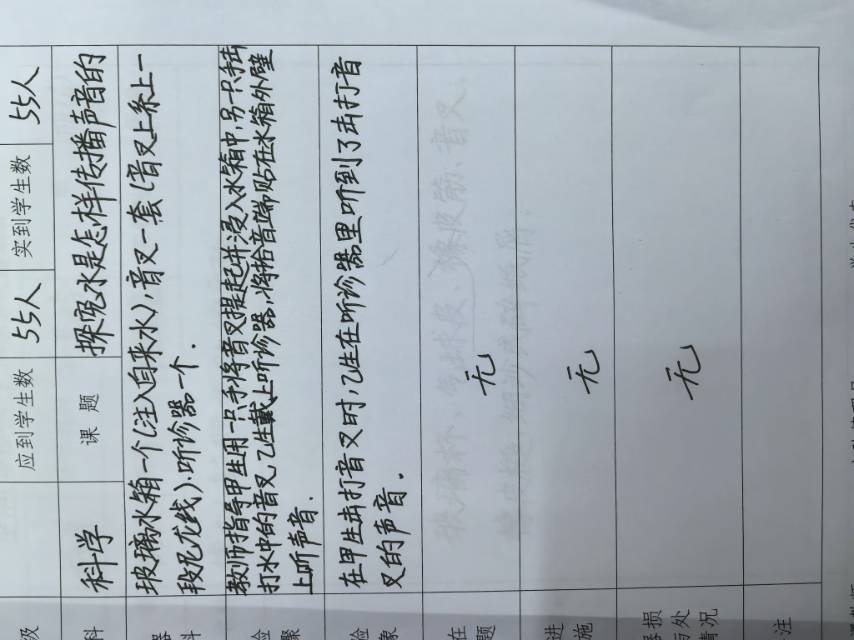 级 应到学生数 55人 实到学生数 55人
科 科学 课题 探究水是怎样传播声音的
器 玻璃水箱一个(注入自来水),音叉一套(音叉上系上一
料 段尼龙线).听诊器一个.
教师指导甲生用一只手将音叉提起并浸入水箱中,另一只手击
验 打水中的音叉,乙生戴上听诊器,将拾音端贴在水箱外壁
骤 上听声音.
验 在甲生击打音叉时,乙生在听诊器里听到了击打音
象 叉的声音.
在
题 无
进
施 无
损
处 无
情况
注